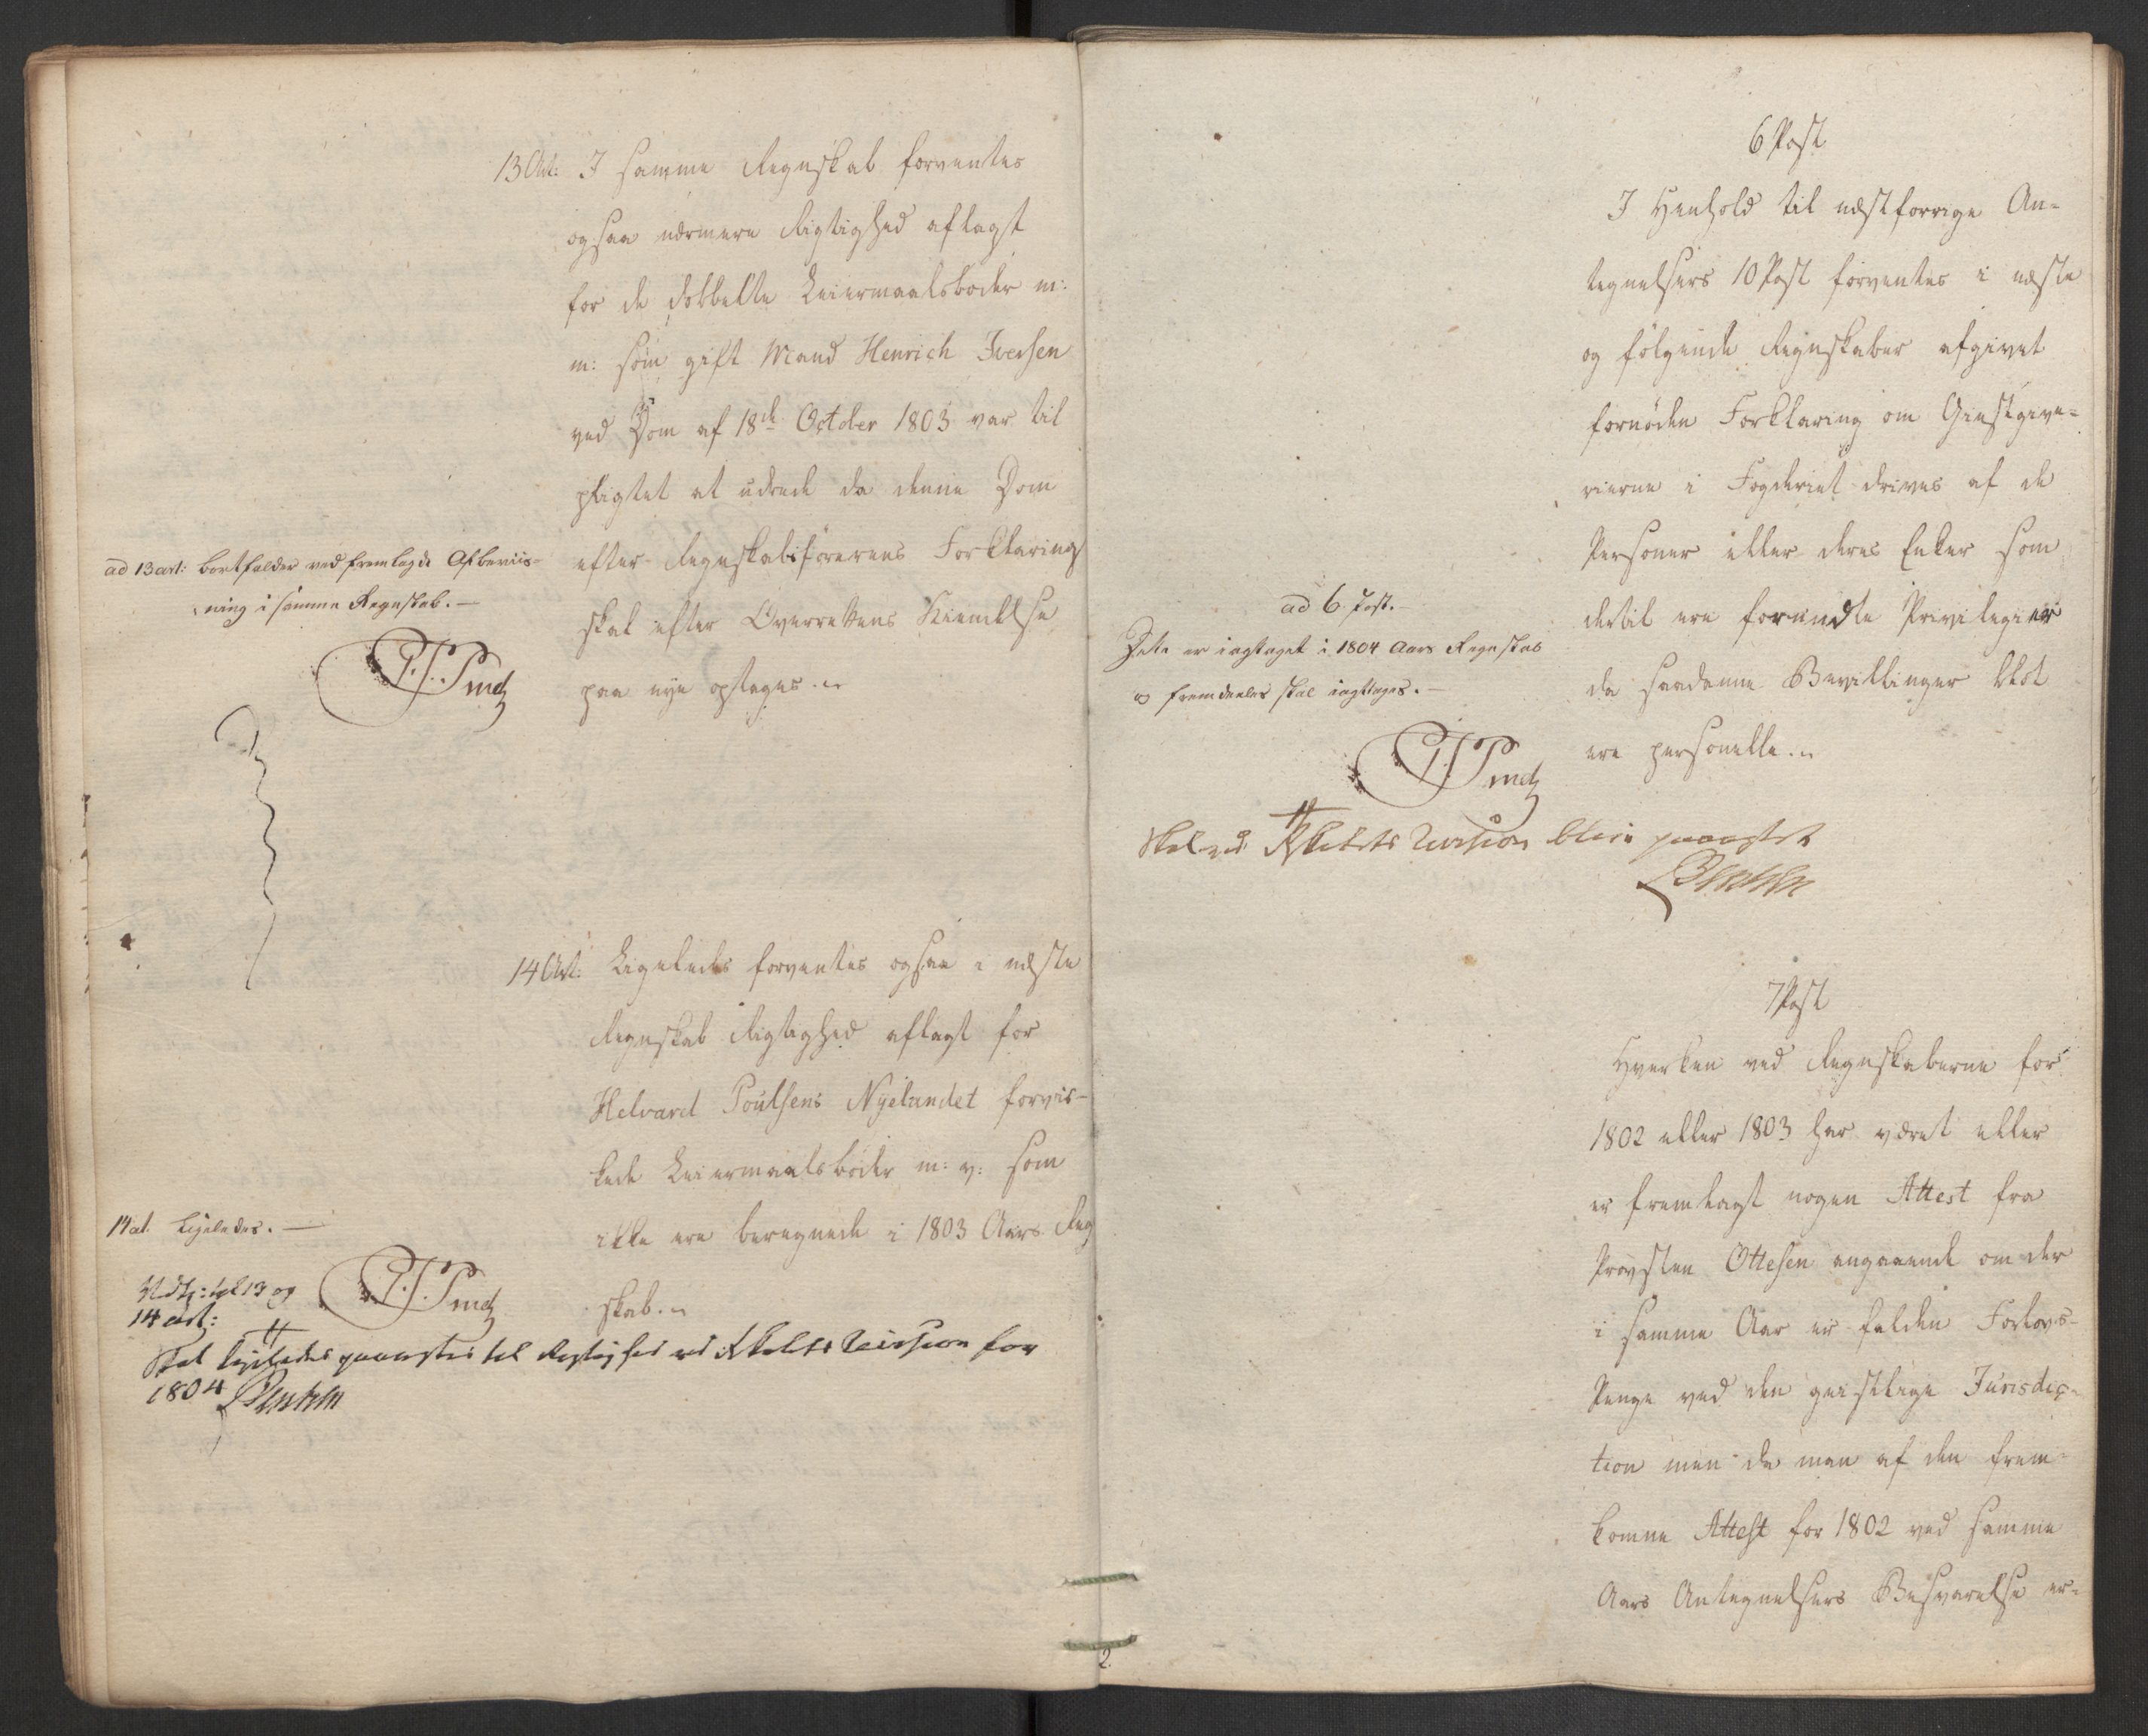 13 Art: I samme Regnskab forventes
ogsaa nærmere Rigtighed aflagt
for de dobbelte Leiermaalsbøder m:
m: som gift Mand Henrich Iversen
ved Dom af 18de October 1803 var til
pligtet at udrede da denne Dom
efter Regnskabsførerens Forklaring
skal efter Overrettens Kiendelse
paa nye optages.
ad 13 art: bortfalder ved fremlagde Afbeviis-
ning i samme Regnskab. —
14 Art: Ligeledes forventes ogsaa i næste
Regnskab Rigtighed aflagt for
Helvard Poulsens Nyelandet forvir-
kede Leiermaalsbøder m: v: som
ikke ere beregnede i 1803 Aars Reg
skab.
14 at. Ligeledes. —
13 og
14 art:
Skal ligeledes paaagtes til Rigtighed ved Revision for
1804
6 Post
I Henhold til næstforrige An-
tegnelsers 10 Post forventes i næste
og følgende Regnskaber afgivet
fornøden Forklaring om Giestgive-
rierne i Fogderiet drives af de
Personer eller deres Enker som
dertil ere forundte Privilegier
da saadanne Bevillinger blot
ere personelle.
ad 6. Post. —
Dette er iagtaget i 1804 Aars Regnskab
og fremdeeles skal iagttages. —
Skal ved Revision blive paaagtet
7 Post
Hverken ved Regnskaberne for
1802 eller 1803 har været eller
er fremlagt nogen Attest fra
Provsten Ottesen angaaende om der
i samme Aar er falden Forlovs-
Penge ved den geistlige Jurisdic-
tion men da man af den frem-
komne Attest for 1802 ved samme
Aars Antegnelsers Besvarelse er-
2.